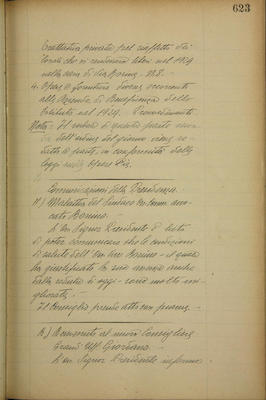 623
Trattativa privata pel riaffitto dei
locali che si rendessero liberi nel 1924
nella casa di Via
4. Opere e forniture diverse occorrenti
alle Aziende di Beneficenza dello
Istituto nel 1924. Provvedimenti.
Nota: Il verbale di questa parte
dell'ordine del giorno viene
a parte, in conformità della
legge sulle Opere Pie.
Comunicazioni della Presidenza.
A) Malattia del Sindaco
cato Bonino.
Il Signor Presidente è lieto
di poter comunicare che le condizioni
di salute dell'On. Avv. Bonino - il quale
ha giustificato la sua assenza anche
dalla seduta di oggi - sono molto mi-
gliorate.
Il Consiglio prende atto con piacere.
B) Benvenuto al nuovo Consigliere
Grand'Uff. Giordano.
Il Signor Presidente informa